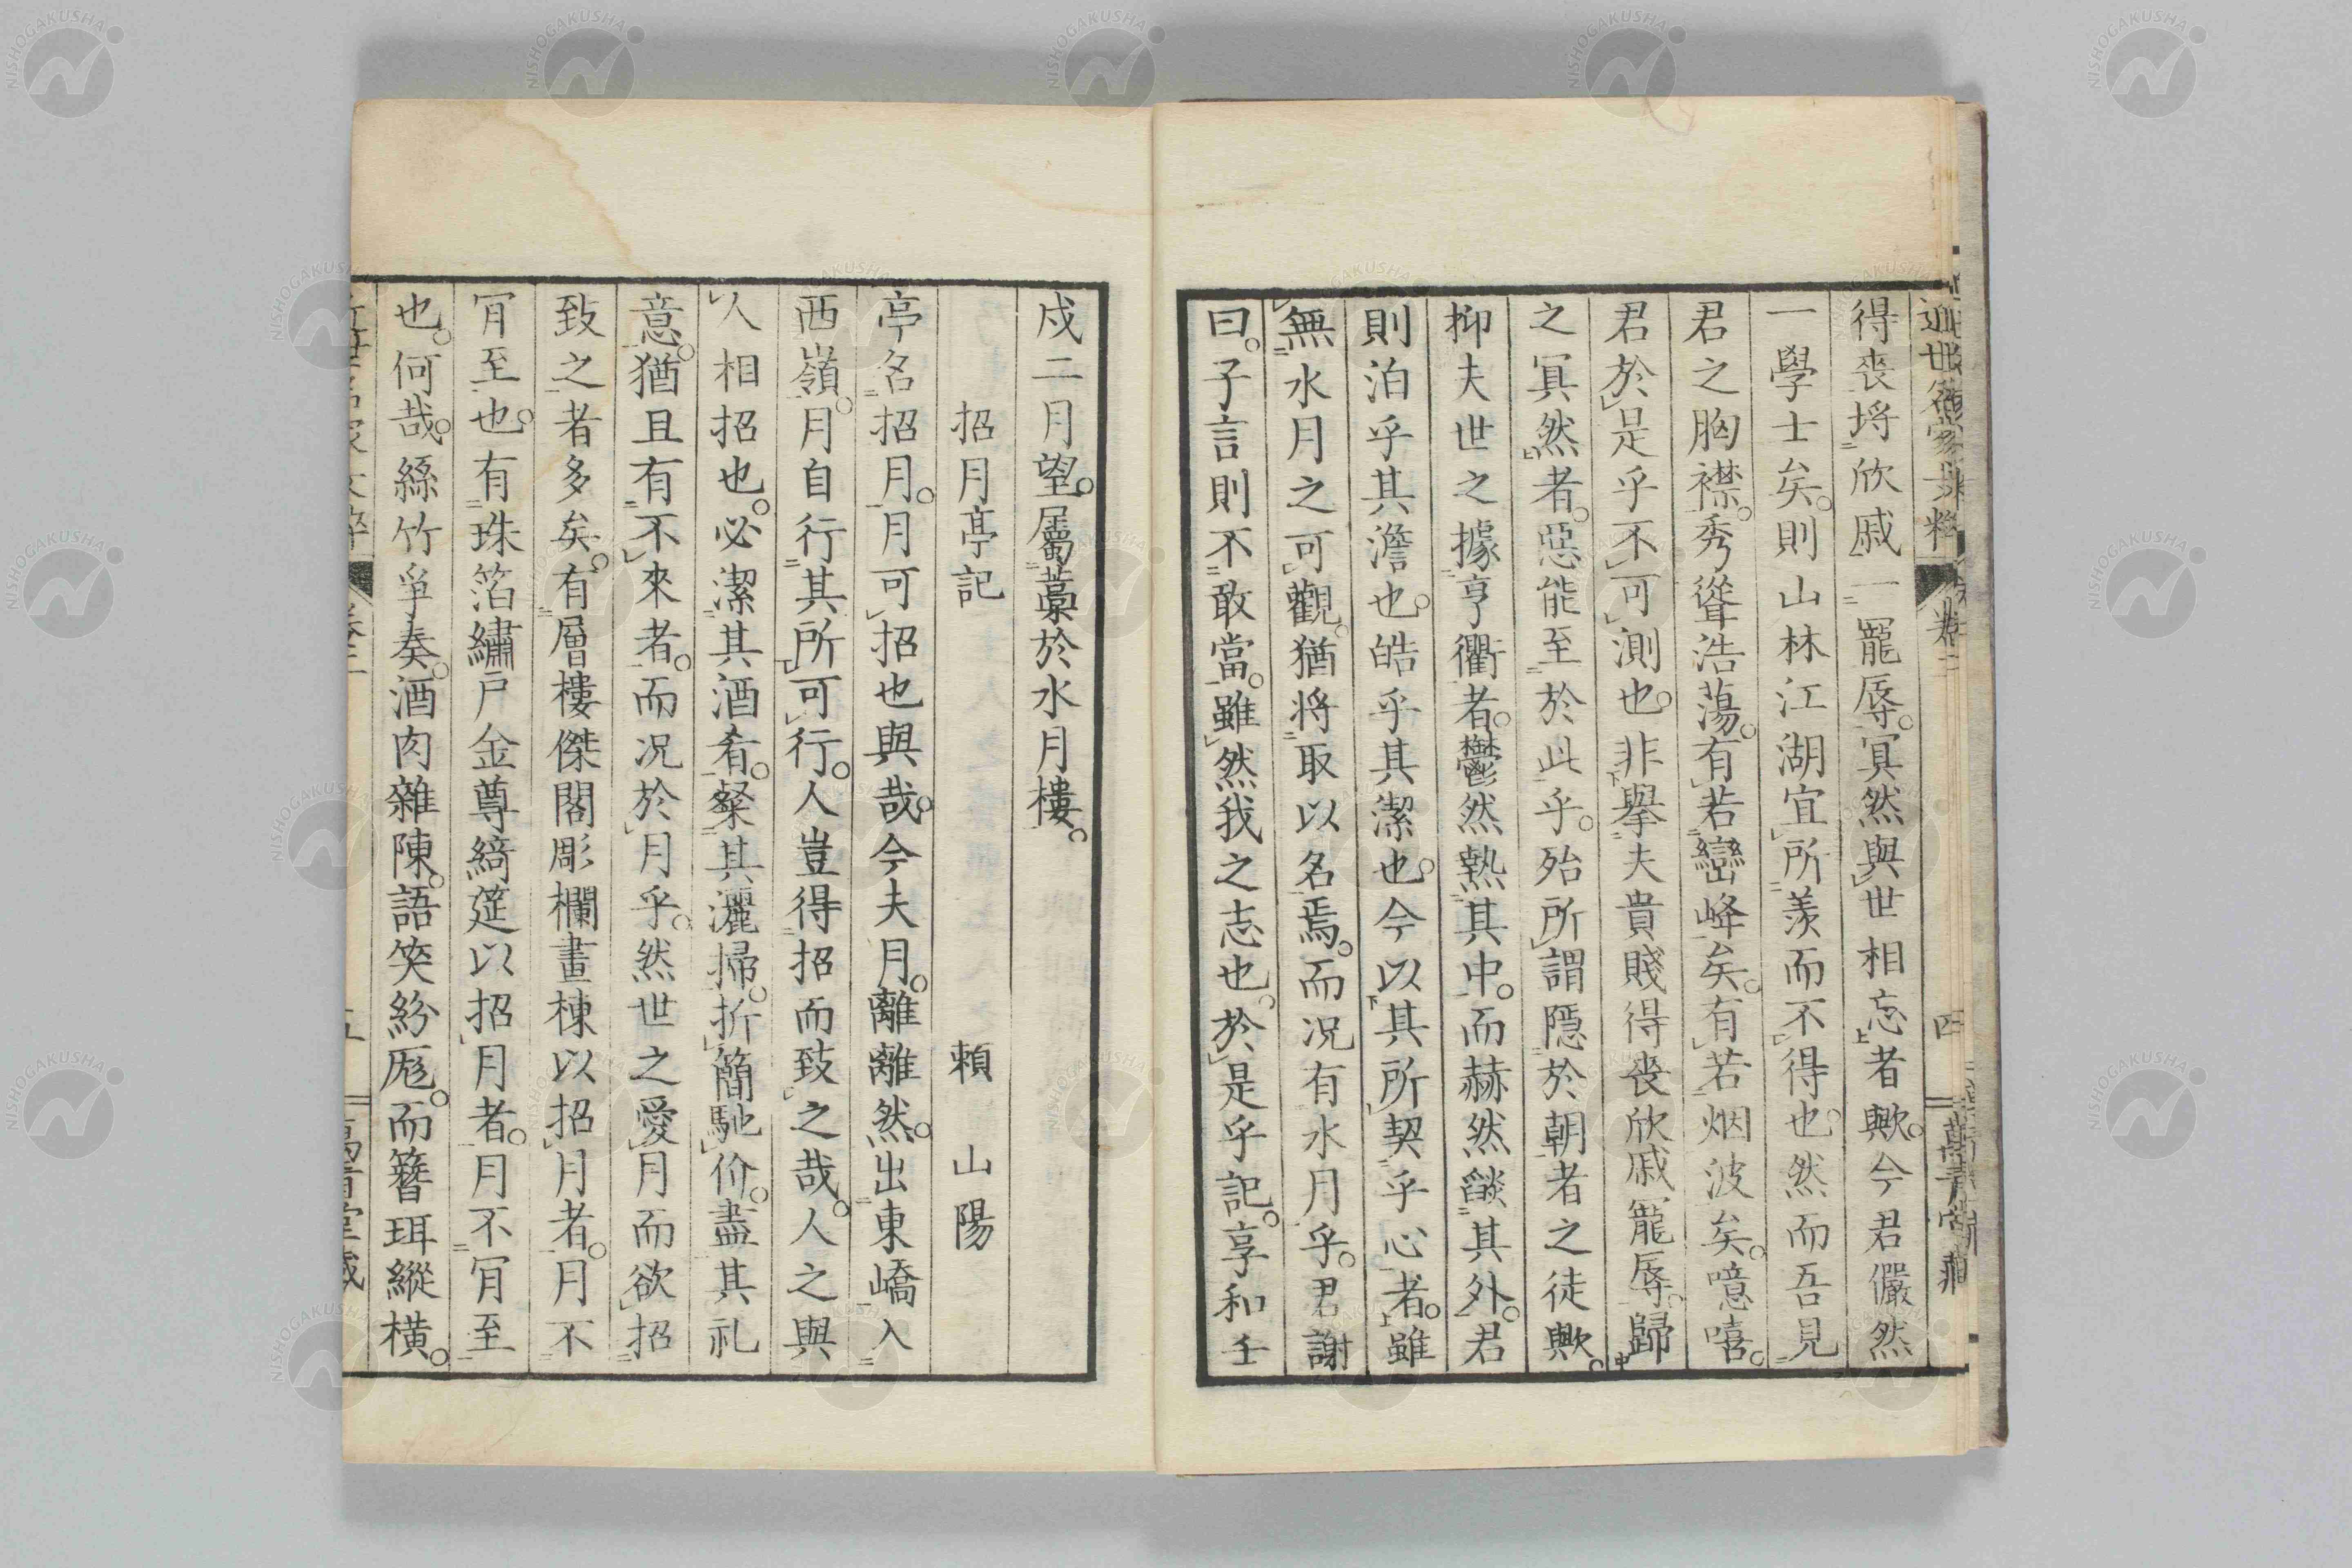 得喪埒欣戚一寵辱。冥然與世相忘者歟。今君儼然
一學士矣。則山林江湖宜所羨而不得也。然而吾見
君之胸襟。秀聳浩蕩。有若巒峰矣。有若烟波矣。噫嘻。
君於是乎不可測也。非擧夫貴賤得喪欣戚寵辱。歸
之冥然者。惡能至於此乎。殆所謂隱於朝者之徒歟。
抑夫世之據亨衢者。鬱然熱其中。而赫然燄其外。君
則泊乎其澹也。皓乎其潔也。今以其所契乎心者。雖
無水月之可觀。猶將取以名焉。而況有水月乎。君謝
曰。子言則不敢當。雖然我之志也。於是乎記。享和壬
戌二月望。屬藁於水月樓。
招月亭記 賴山陽
亭名招月。月可招也與哉。今夫月。離離然。出東嶠入
西嶺。月自行其所可行。人豈得招而致之哉。人之與
人相招也。必潔其酒肴。粲其灑掃。折簡馳价。盡其礼
意。猶且有不來者。而況於月乎。然世之愛月而欲招
致之者多矣。有層樓傑閣彫欄畫棟以招月者。月不
肎至也。有珠箔繡戶金尊綺筵以招月者。月不肎至
也。何哉。絲竹爭奏。酒肉雜陳。語笑紛厖。而簪珥縱橫。